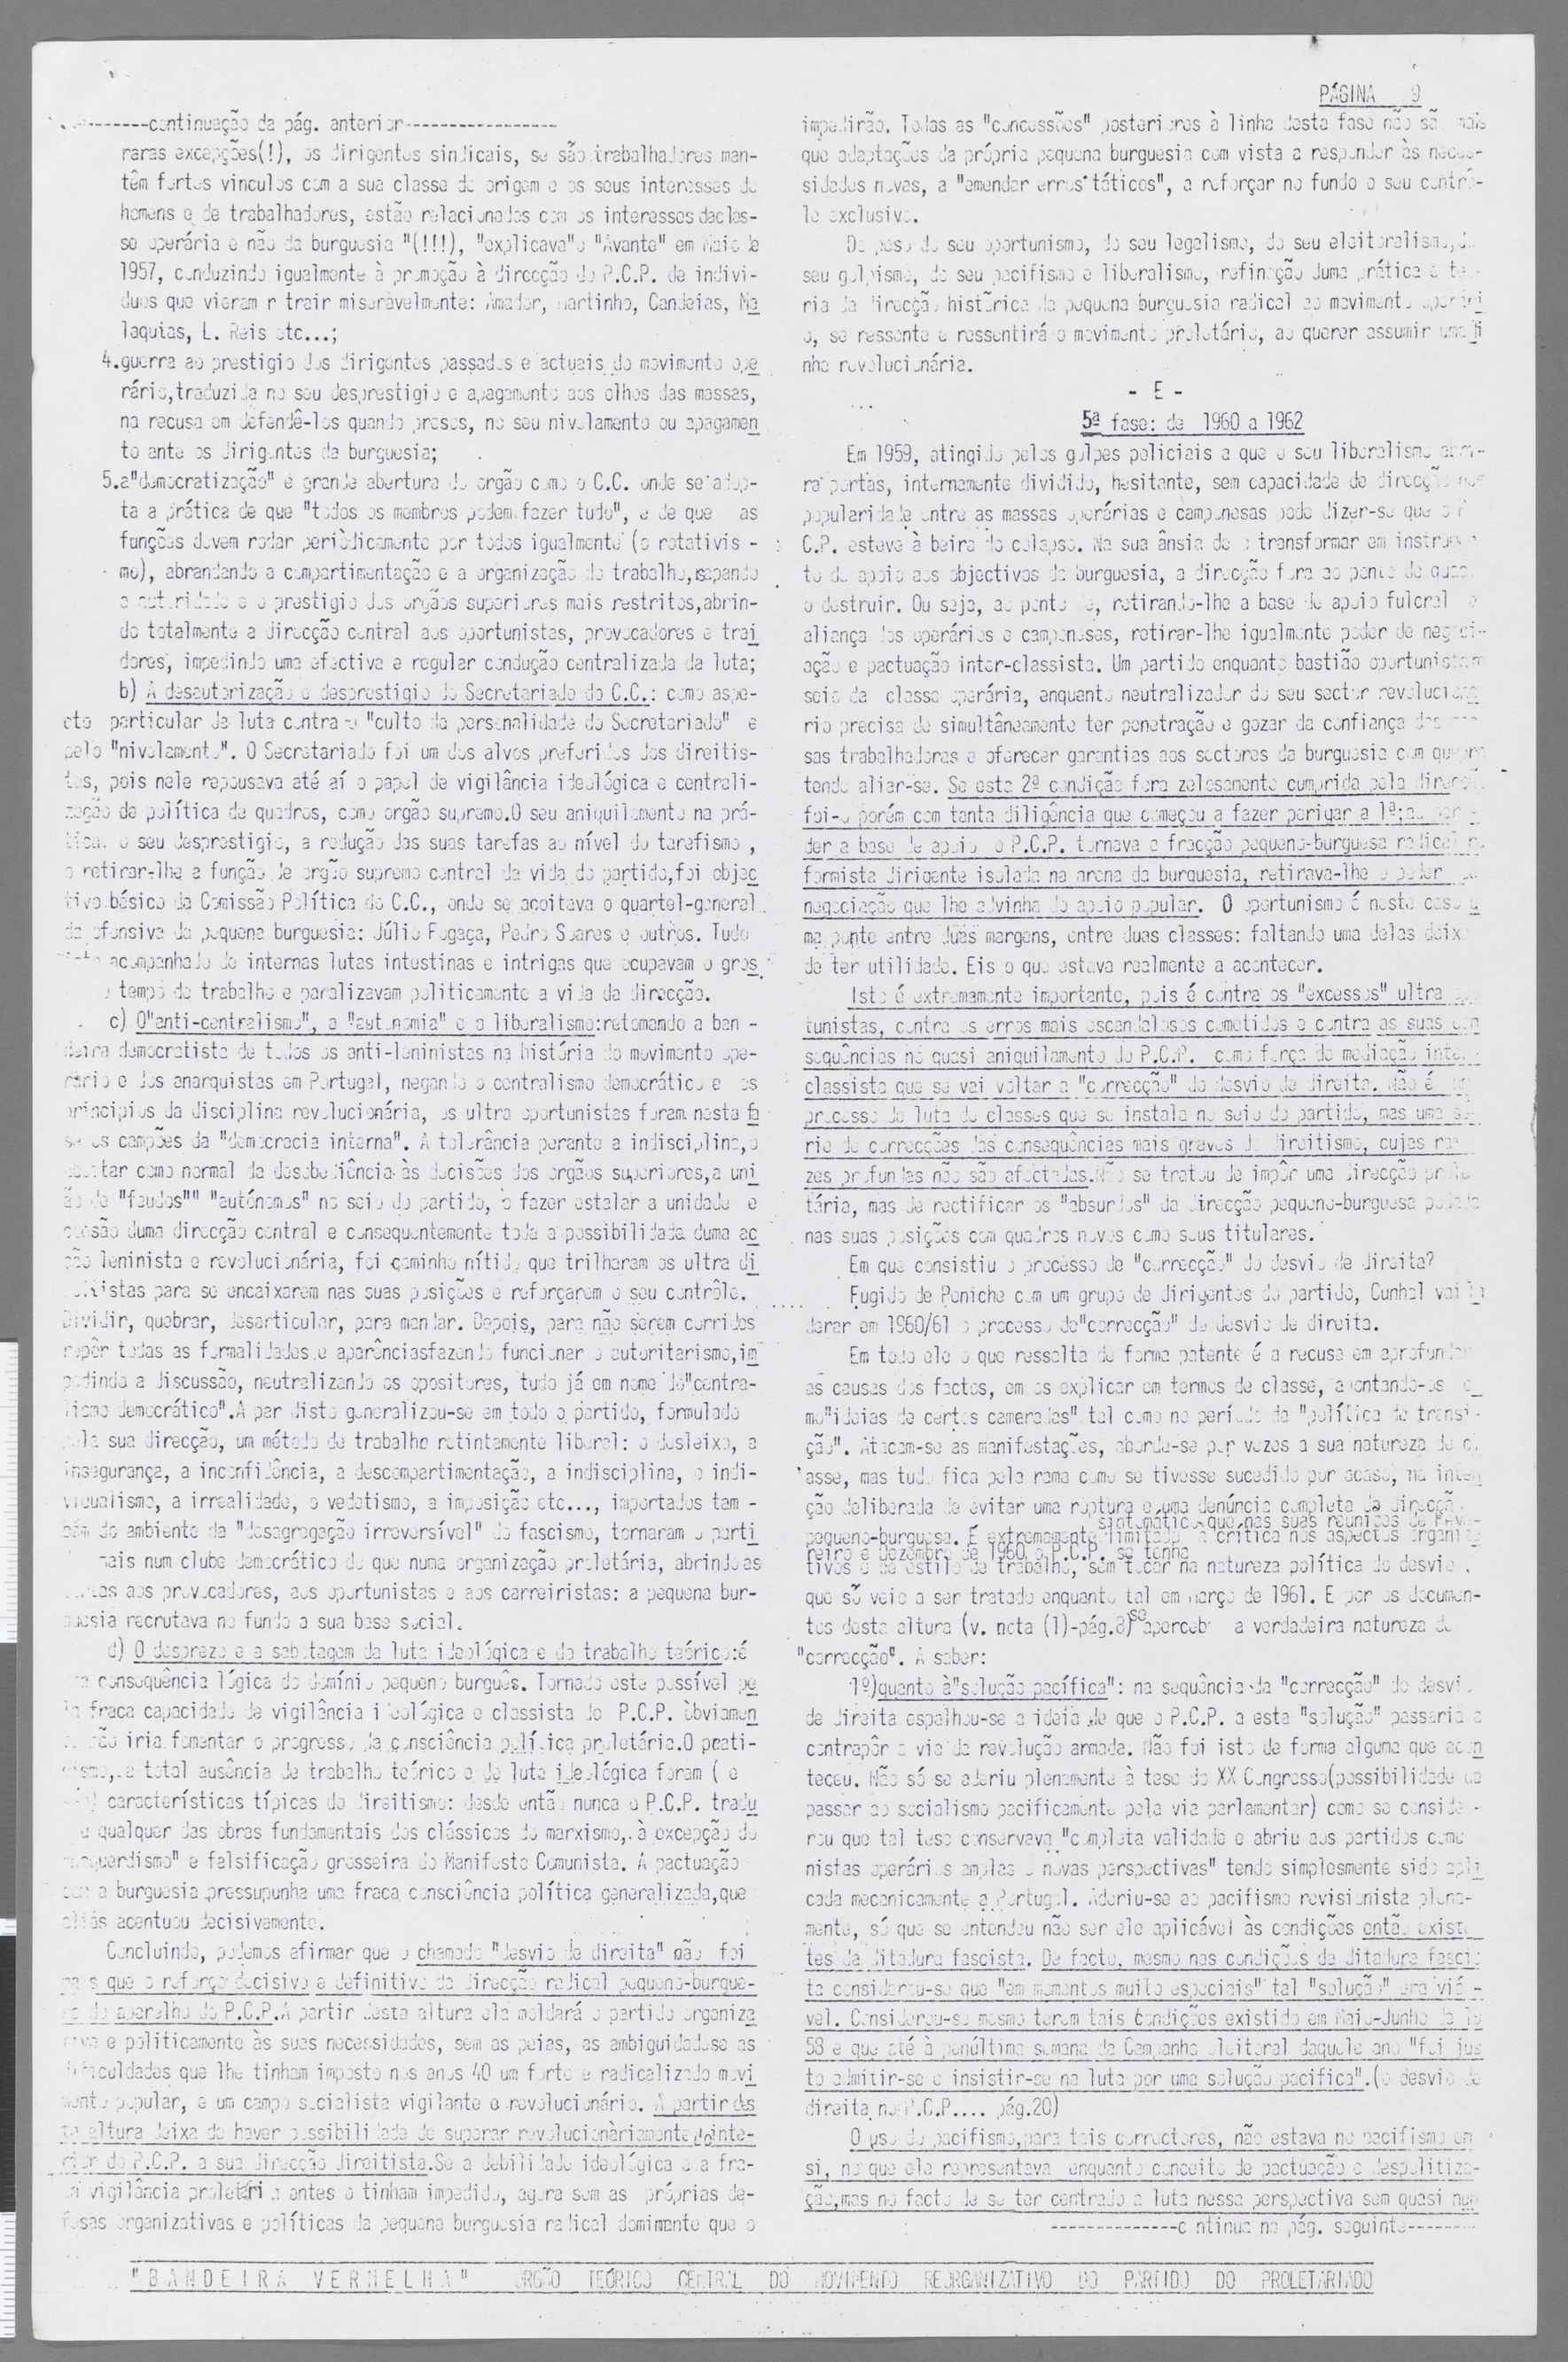 PÁGINA 9
---------continuação da pág. anterior------------------
raras excepções(!), os dirigentes sindicais, se são trabalhadores man-
têm fortes vinculos com a sua classe de origem e os seus interesses de
homens e de trabalhadores, estão relacionados com os interesses da clas-
se operária e não da burguesia "(!!!), "explicava" o "Avante" em Maio de
1957, conduzindo igualmente à promoção à direcção do P.C.P. de indivi-
duos que vieram a trair miseràvelmente: Amador, Martinho, Candeias, Ma
laquias, L. Reis etc...;
4.guerra ao prestigio dos dirigentes passados e actuais do movimento ope
rário,traduzida no seu desprestigio e apagamento aos olhos das massas,
na recusa em defendê-los quando presos, no seu nivelamento ou apagamen
to ante os dirigentes da burguesia;
5.a"democratização" e grande abertura do orgão como o C.C. onde se adop-
ta a prática de que "todos os membros podem fazer tudo", e de que as
funções devem rodar periòdicamente por todos igualmente (o rotativis -
mo), abrandando a compartimentação e a organização do trabalho, sapando
a autoridade e o prestigio dos orgãos superiores mais restritos,abrin-
do totalmente a direcção central aos oportunistas, provocadores e trai
dores, impedindo uma efectiva e regular condução centralizada da luta;
b) A desautorização e desprestigio do Secretariado do C.C.: como aspe-
cto particular da luta contra o "culto da personalidade do Secretariado" e
pelo "nivelamento". O Secretariado foi um dos alvos preferidos dos direitis-
tas, pois nele repousava até aí o papel de vigilância ideológica e centrali-
zação da política de quadros, como orgão supremo.O seu aniquilamento na prá-
tica, o seu desprestigio, a redução das suas tarefas ao nível do tarefismo ,
o retirar-lhe a função de orgão supremo central da vida do partido,foi objec
tivo básico da Comissão Política do C.C., onde se acoitava o quartel-general
da ofensiva da pequena burguesia: Júlio Fogaça, Pedro Soares e outros. Tudo
isto acompanhado de internas lutas intestinas e intrigas que ocupavam o gros
o tempo de trabalho e paralizavam politicamente a vida da direcção.
c) O"anti-centralismo", a "autonomia" e o liberalismo:retomando a ban -
deira democratista de todos os anti-leninistas na história do movimento ope-
rário e dos anarquistas em Portugal, negando o centralismo democrático e os
principios da disciplina revolucionária, os ultra oportunistas foram nesta fa
se os campões da "democracia interna". A tolerância perante a indisciplina,o
aceitar como normal da desobediência às decisões dos orgãos superiores,a uni
ão de "feudos"" "autónomos" no seio do partido, o fazer estalar a unidade e
coesão duma direcção central e consequentemente toda a possibilidade duma ac
ção leninista e revolucionária, foi caminho nítido que trilharam os ultra di
reitistas para se encaixarem nas suas posições e reforçarem o seu contrôle.
Dividir, quebrar, desarticular, para mandar. Depois, para não serem corridos
repôr todas as formalidades e aparênciasfazendo funcionar o autoritarismo,im
pedindo a discussão, neutralizando os opositores, tudo já em nome do"centra-
lismo democrático".A par disto generalizou-se em todo o partido, formulado
pela sua direcção, um método de trabalho retintamente liberal: o desleixo, a
insegurança, a inconfidência, a descompartimentação, a indisciplina, o indi-
vidualismo, a irrealidade, o vedetismo, a imposição etc..., importados tam -
bém do ambiente da "desagregação irreversível" do fascismo, tornaram o parti
mais num clube democrático do que numa organização proletária, abrindo as
portas aos provocadores, aos oportunistas e aos carreiristas: a pequena bur-
guesia recrutava no fundo a sua base social.
d) O desprezo e a sabotagem da luta ideológica e do trabalho teórico:é
consequência lógica do domínio pequeno burguês. Tornado este possível pe
la fraca capacidade de vigilância ideológica e classista do P.C.P. òbviamen
te não iria fomentar o progresso da consciência política proletária.O prati-
cismo, a total ausência de trabalho teórico e de luta ideológica foram ( e
características típicas do direitismo: desde então nunca o P.C.P. tradu
qualquer das obras fundamentais dos clássicos do marxismo, à excepção do
"Esquerdismo" e falsificação grosseira do Manifesto Comunista. A pactuação
com a burguesia pressupunha uma fraca consciência política generalizada,que
aliás acentuou decisivamente.
Concluindo, podemos afirmar que o chamado "desvio de direita" não foi
mais que o reforço decisivo e definitivo da direcção radical pequeno-burgue-
sa do aparelho do P.C.P.A partir desta altura ela moldará o partido organiza
tiva e politicamente às suas necessidades, sem as peias, as ambiguidadese as
dificuldades que lhe tinham imposto nos anos 40 um forte e radicalizado movi
mento popular, e um campo socialista vigilante e revolucionário. A partir des
ta altura deixa de haver possibilidade de superar revolucionàriamente dointe-
rior do P.C.P. a sua direcção direitista.Se a debilidade ideológica e a fra-
ca vigilância proletária antes o tinham impedido, agora sem as próprias de-
fesas organizativas e políticas da pequena burguesia radical dominante que o
impedirão. Todas as "concessões" posteriores à linha desta fase não são mais
que adaptações da própria pequena burguesia com vista a responder às neces-
sidades novas, a "emendar erros táticos", a reforçar no fundo o seu contrô-
le exclusivo.
Do peso do seu oportunismo, do seu legalismo, do seu eleitoralismo,do
seu golpismo, do seu pacifismo e liberalismo, refinação duma prática e teo-
ria da direcção histórica da pequena burguesia radical ao movimento operári
o, se ressente e ressentirá o movimento proletário, ao querer assumir uma li
nha revolucionária.
- E -
5ª fase: de 1960 a 1962
Em 1959, atingido pelos golpes policiais a que o seu liberalismo abri-
ra portas, internamente dividido, hesitante, sem capacidade de direcção nem
popularidade entre as massas operárias e camponesas pode dizer-se que o P.
C.P. esteve à beira do colapso. Na sua ânsia de o transformar em instrumen
to de apoio aos objectivos da burguesia, a direcção fora ao ponto de quasi
o destruir. Ou seja, ao ponto de, retirando-lhe a base de apoio fulcral a
aliança dos operários e camponeses, retirar-lhe igualmente poder de negoci-
ação e pactuação inter-classista. Um partido enquanto bastião oportunista no
seio da classe operária, enquanto neutralizador do seu sector revolucioná
rio precisa de simultâneamente ter penetração e gozar da confiança das mas
sas trabalhadoras e oferecer garantias aos sectores da burguesia com que pre
tende aliar-se. Se esta 2ª condição fora zelosamente cumprida pela direcção
foi-o porém com tanta diligência que começou a fazer perigar a 1ª:ao per -
der a base de apoio o P.C.P. tornava a fracção pequeno-burguesa radical re
formista dirigente isolada na arena da burguesia, retirava-lhe o poder de
negociação que lhe advinha do apoio popular. O oportunismo é neste caso u
ma ponte entre duas margens, entre duas classes: faltando uma delas deixa
de ter utilidade. Eis o que estava realmente a acontecer.
Isto é extremamente importante, pois é contra os "excessos" ultra opor
tunistas, contra os erros mais escandalosos cometidos e contra as suas con
sequências no quasi aniquilamento do P.C.P. como força de mediação inter-
classista que se vai voltar a "correcção" do desvio de direita. Não é um
processo de luta de classes que se instala no seio do partido, mas uma sé-
rie de correcções das consequências mais graves do direitismo, cujas raí
zes profundas não são afectadas.Não se tratou de impôr uma direcção prole
tária, mas de rectificar os "absurdos" da direcção pequeno-burguesa
nas suas posições com quadros novos como seus titulares.
Em que consistiu o processo de "correcção" do desvio de direita?
Fugido de Peniche com um grupo de dirigentes do partido, Cunhal vai li
derar em 1960/61 o processo de"correcção" do desvio de direita.
Em todo ele o que ressalta de forma patente é a recusa em aprofundar
as causas dos factos, em os explicar em termos de classe, apontando-os co
mo"ideias de certos camaradas" tal como no período da "política de transi -
ção". Atacam-se as manifestações, aborda-se por vezes a sua natureza de cl
asse, mas tudo fica pela rama como se tivesse sucedido por acaso, na inten
ção deliberada de evitar uma ruptura e uma denúncia completa da direcção
pequeno-burguesa. É extremamente sintomático que nas suas reuniões de Feve-
reiro e Dezembro de 1960 o P.C.P. se tenha limitado à crítica nos aspectos organiza
tivos e de estilo de trabalho, sem tocar na natureza política do desvio ,
que só veio a ser tratado enquanto tal em março de 1961. E por os documen-
tos desta altura (v. nota (1)-pág.8) se apercebe a verdadeira natureza da
"correcção". A saber:
1º)quanto à"solução pacífica": na sequência da "correcção" do desvio
de direita espalhou-se a ideia de que o P.C.P. a esta "solução" passaria a
contrapôr a via da revolução armada. Não foi isto de forma alguma que acon
teceu. Não só se aderiu plenamente à tese do XX Congresso(possibilidade de
passar ao socialismo pacificamente pela via parlamentar) como se conside -
rou que tal tese conservava "completa validade e abriu aos partidos comu
nistas operários amplas e novas perspectivas" tendo simplesmente sido apli
cada mecanicamente a Portugal. Aderiu-se ao pacifismo revisionista plena-
mente, só que se entendeu não ser ele aplicável às condições então existen
tes da ditadura fascista. De facto, mesmo nas condições da ditadura fascis
ta considerou-se que "em momentos muito especiais" tal "solução" era viá -
vel. Considerou-se mesmo terem tais condições existido em Maio-Junho de 19
58 e que até à penúltima semana da Campanha eleitoral daquele ano "foi jus
to admitir-se e insistir-se na luta por uma solução pacifica".(o desvio de
direita no P.C.P.... pág.20)
O uso do pacifismo,para tais correctores, não estava no pacifismo en
si, no que ele representava enquanto conceito de pactuação e despolitiza-
ção,mas no facto de se ter centrado a luta nessa perspectiva sem quasi nun
---------------continua na pág. seguinte---------
"BANDEIRA VERMELHA" ORGÃO TEÓRICO CENTRAL DO MOVIMENTO REORGANIZATIVO DO PARTIDO DO PROLETARIADO